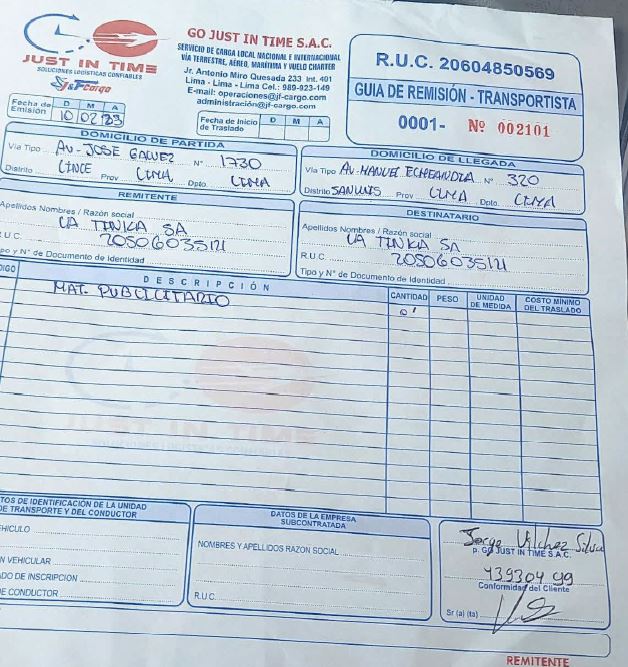 JUST IN TIME
SOLUCIONES LOGISTICAS CONFIABLES
J&F Cargo
GO JUST IN TIME S.A.C.
SERVICIO DE CARGA LOCAL NACIONAL E INTERNACIONAL
VÍA TERRESTRE, AÉREO, MARÍTIMA Y VUELO CHARTER
Jr. Antonio Miro Quesada 233 Int. 401
Lima - Lima - Lima Cel.: 989-023-149
E-mail: operaciones@jf-cargo.com
administración@jf-cargo.com
R.U.C. 20604850569
GUIA DE REMISIÓN - TRANSPORTISTA
0001- Nº 002101
Fecha de Emisión D M A
10 02 23
Fecha de Inicio de Traslado D M A
DOMICILIO DE PARTIDA
Vía Tipo AV. JOSE GALVEZ Nº 1730
Distrito LINCE Prov LIMA Dpto. LIMA
DOMICILIO DE LLEGADA
Vía Tipo AV. MANUEL ECHEANDIA Nº 320
Distrito SAN LUIS Prov LIMA Dpto. LIMA
REMITENTE
Apellidos Nombres / Razón social
LA TINKA SA
R.U.C. 20506035121
Tipo y N° de Documento de Identidad
DESTINATARIO
Apellidos Nombres / Razón social
LA TINKA SA
R.U.C. 20506035121
Tipo y N° de Documento de Identidad
DIGO DESCRIPCIÓN CANTIDAD PESO UNIDAD DE MEDIDA COSTO MÍNIMO DEL TRASLADO
MAT. PUBLICITARIO 01
JUST IN TIME
TOS DE IDENTIFICACIÓN DE LA UNIDAD
DE TRANSPORTE Y DEL CONDUCTOR
EHICULO
N VEHICULAR
ADO DE INSCRIPCION
DE CONDUCTOR
DATOS DE LA EMPRESA
SUBCONTRATADA
NOMBRES Y APELLIDOS RAZON SOCIAL
R.U.C.
Jorge Vilchez Silva
p. GO JUST IN TIME S.A.C.
43930499
Conformidad del Cliente
Sr (a) (ta)
REMITENTE